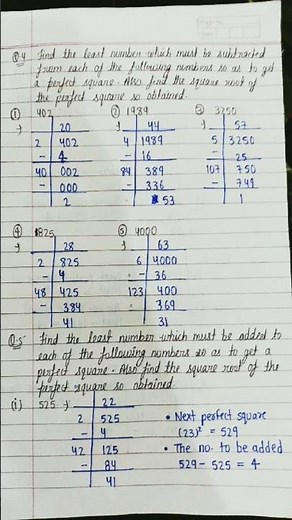 Q.4 Find the least number which must be subtracted
from each of the following numbers so as to get
a perfect square. Also find the square root of
the perfect square so obtained.
(1) 402 (2) 1989 (3) 3250
20 44 57
2 402 4 1989 5 3250
- 4 - 16 - 25
40 002 84 389 107 750
- 000 - 336 - 749
2 53 1
(4) 825 (5) 4000
28 63
2 825 6 4000
- 4 - 36
48 425 123 400
- 384 - 369
41 31
Q.5 Find the least number which must be added to
each of the following numbers so as to get a
perfect square. Also find the square root of the
perfect square so obtained.
(i) 525 → 22
2 525 • Next perfect square
- 4 (23)² = 529
42 125 • The no. to be added
- 84 529 - 525 = 4
41